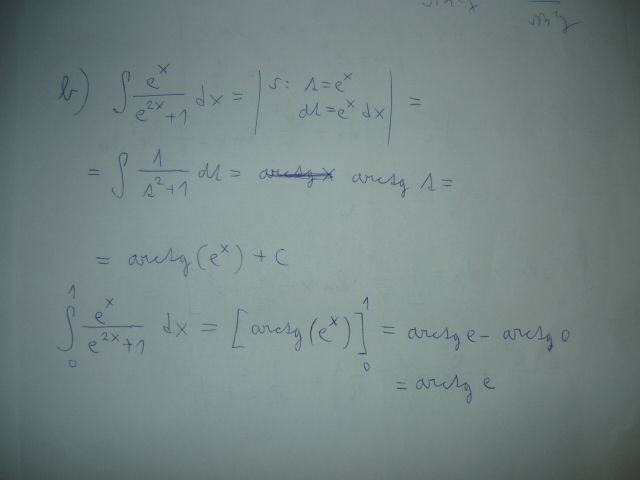 sin²y
b) ∫ e^x / (e^(2x)+1) dx = | s: t=e^x
dt=e^x dx | =
= ∫ 1 / (t²+1) dt = arctg t =
= arctg(e^x) + C
∫₀¹ e^x / (e^(2x)+1) dx = [arctg(e^x)]₀¹ = arctg e - arctg 0
= arctg e